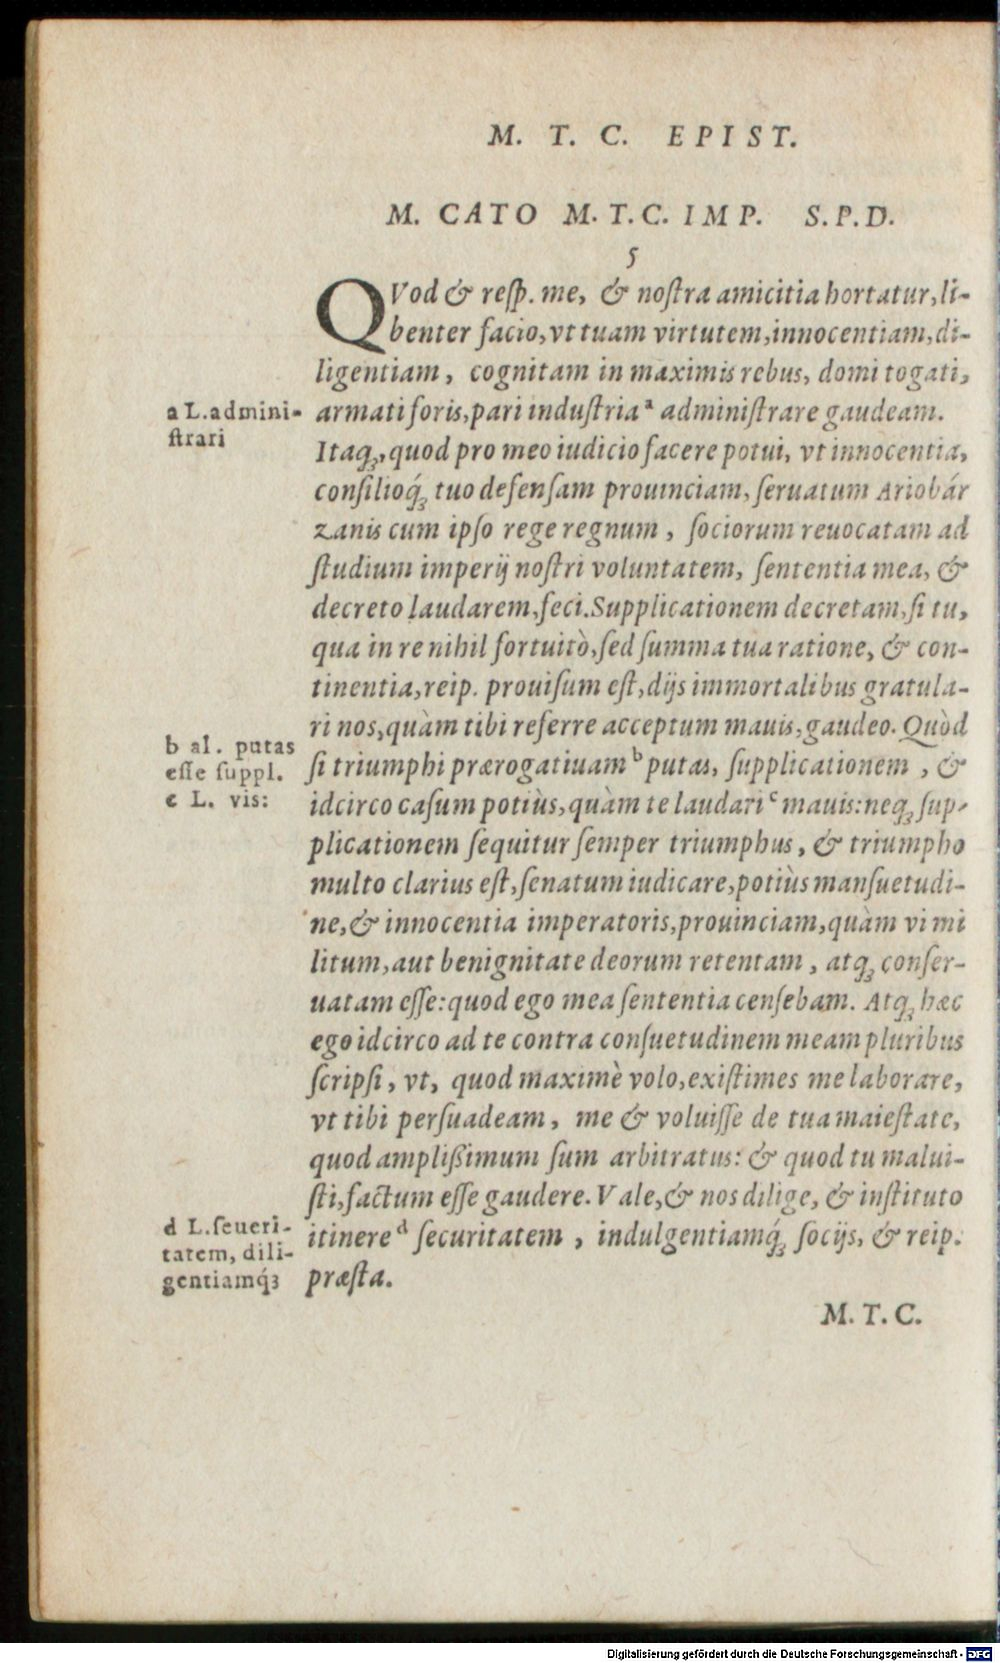 M. T. C. EPIST.
M. CATO M. T. C. IMP. S. P. D.
5
QVod & resp. me, & nostra amicitia hortatur, li-
benter facio, vt tuam virtutem, innocentiam, di-
ligentiam, cognitam in maximis rebus, domi togati,
armati foris, pari industria ᵃ administrare gaudeam.
Itaqꝫ, quod pro meo iudicio facere potui, vt innocentia,
consilioqꝫ́ tuo defensam prouinciam, seruatum Ariobár
zanis cum ipso rege regnum, sociorum reuocatam ad
studium imperij nostri voluntatem, sententia mea, &
decreto laudarem, feci. Supplicationem decretam, si tu,
qua in re nihil fortuitò, sed summa tua ratione, & con-
tinentia, reip. prouisum est, dijs immortalibus gratula-
ri nos, quàm tibi referre acceptum mauis, gaudeo. Quòd
si triumphi prærogatiuam ᵇ putas, supplicationem, &
idcirco casum potiùs, quàm te laudari ᶜ mauis: neqꝫ sup-
plicationem sequitur semper triumphus, & triumpho
multo clarius est, senatum iudicare, potiùs mansuetudi-
ne, & innocentia imperatoris, prouinciam, quàm vi mi
litum, aut benignitate deorum retentam, atqꝫ conser-
uatam esse: quod ego mea sententia censebam. Atqꝫ hæc
ego idcirco ad te contra consuetudinem meam pluribus
scripsi, vt, quod maximè volo, existimes me laborare,
vt tibi persuadeam, me & voluisse de tua maiestate,
quod amplißimum sum arbitratus: & quod tu malui-
sti, factum esse gaudere. Vale, & nos dilige, & instituto
itinere ᵈ securitatem, indulgentiamqꝫ́ socijs, & reip.
præsta.
M. T. C.
a L. admini-
strari
b al. putas
esse suppl.
c L. vis:
d L. seueri-
tatem, dili-
gentiamqꝫ́
Digitalisierung gefördert durch die Deutsche Forschungsgemeinschaft - DFG